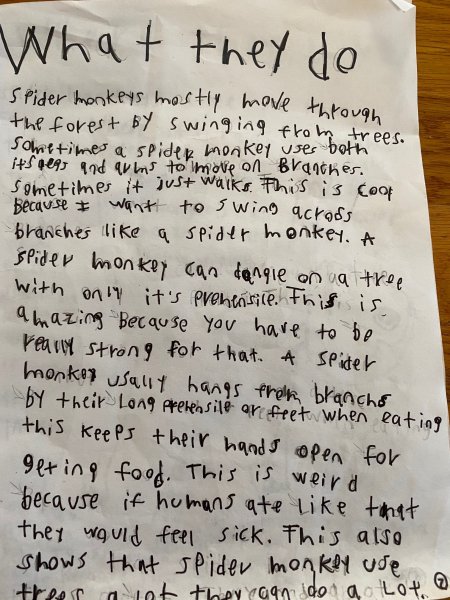 What they do
Spider monkeys mostly move through
the forest by swinging from trees.
Sometimes a spider monkey uses both
its legs and arms to move on branches.
Sometimes it just walks. This is cool
because I want to swing across
branches like a spider monkey. A
spider monkey can dangle on a a tree
with only it's prehensile. This is
amazing because you have to be
really strong for that. A spider
monkey usally hangs from branchs
by their long prehensile or feet when eating
this keeps their hands open for
geting food. This is weird
because if humans ate like that
they would feel sick. This also
shows that spider monkey use
trees a lot they can do a lot.